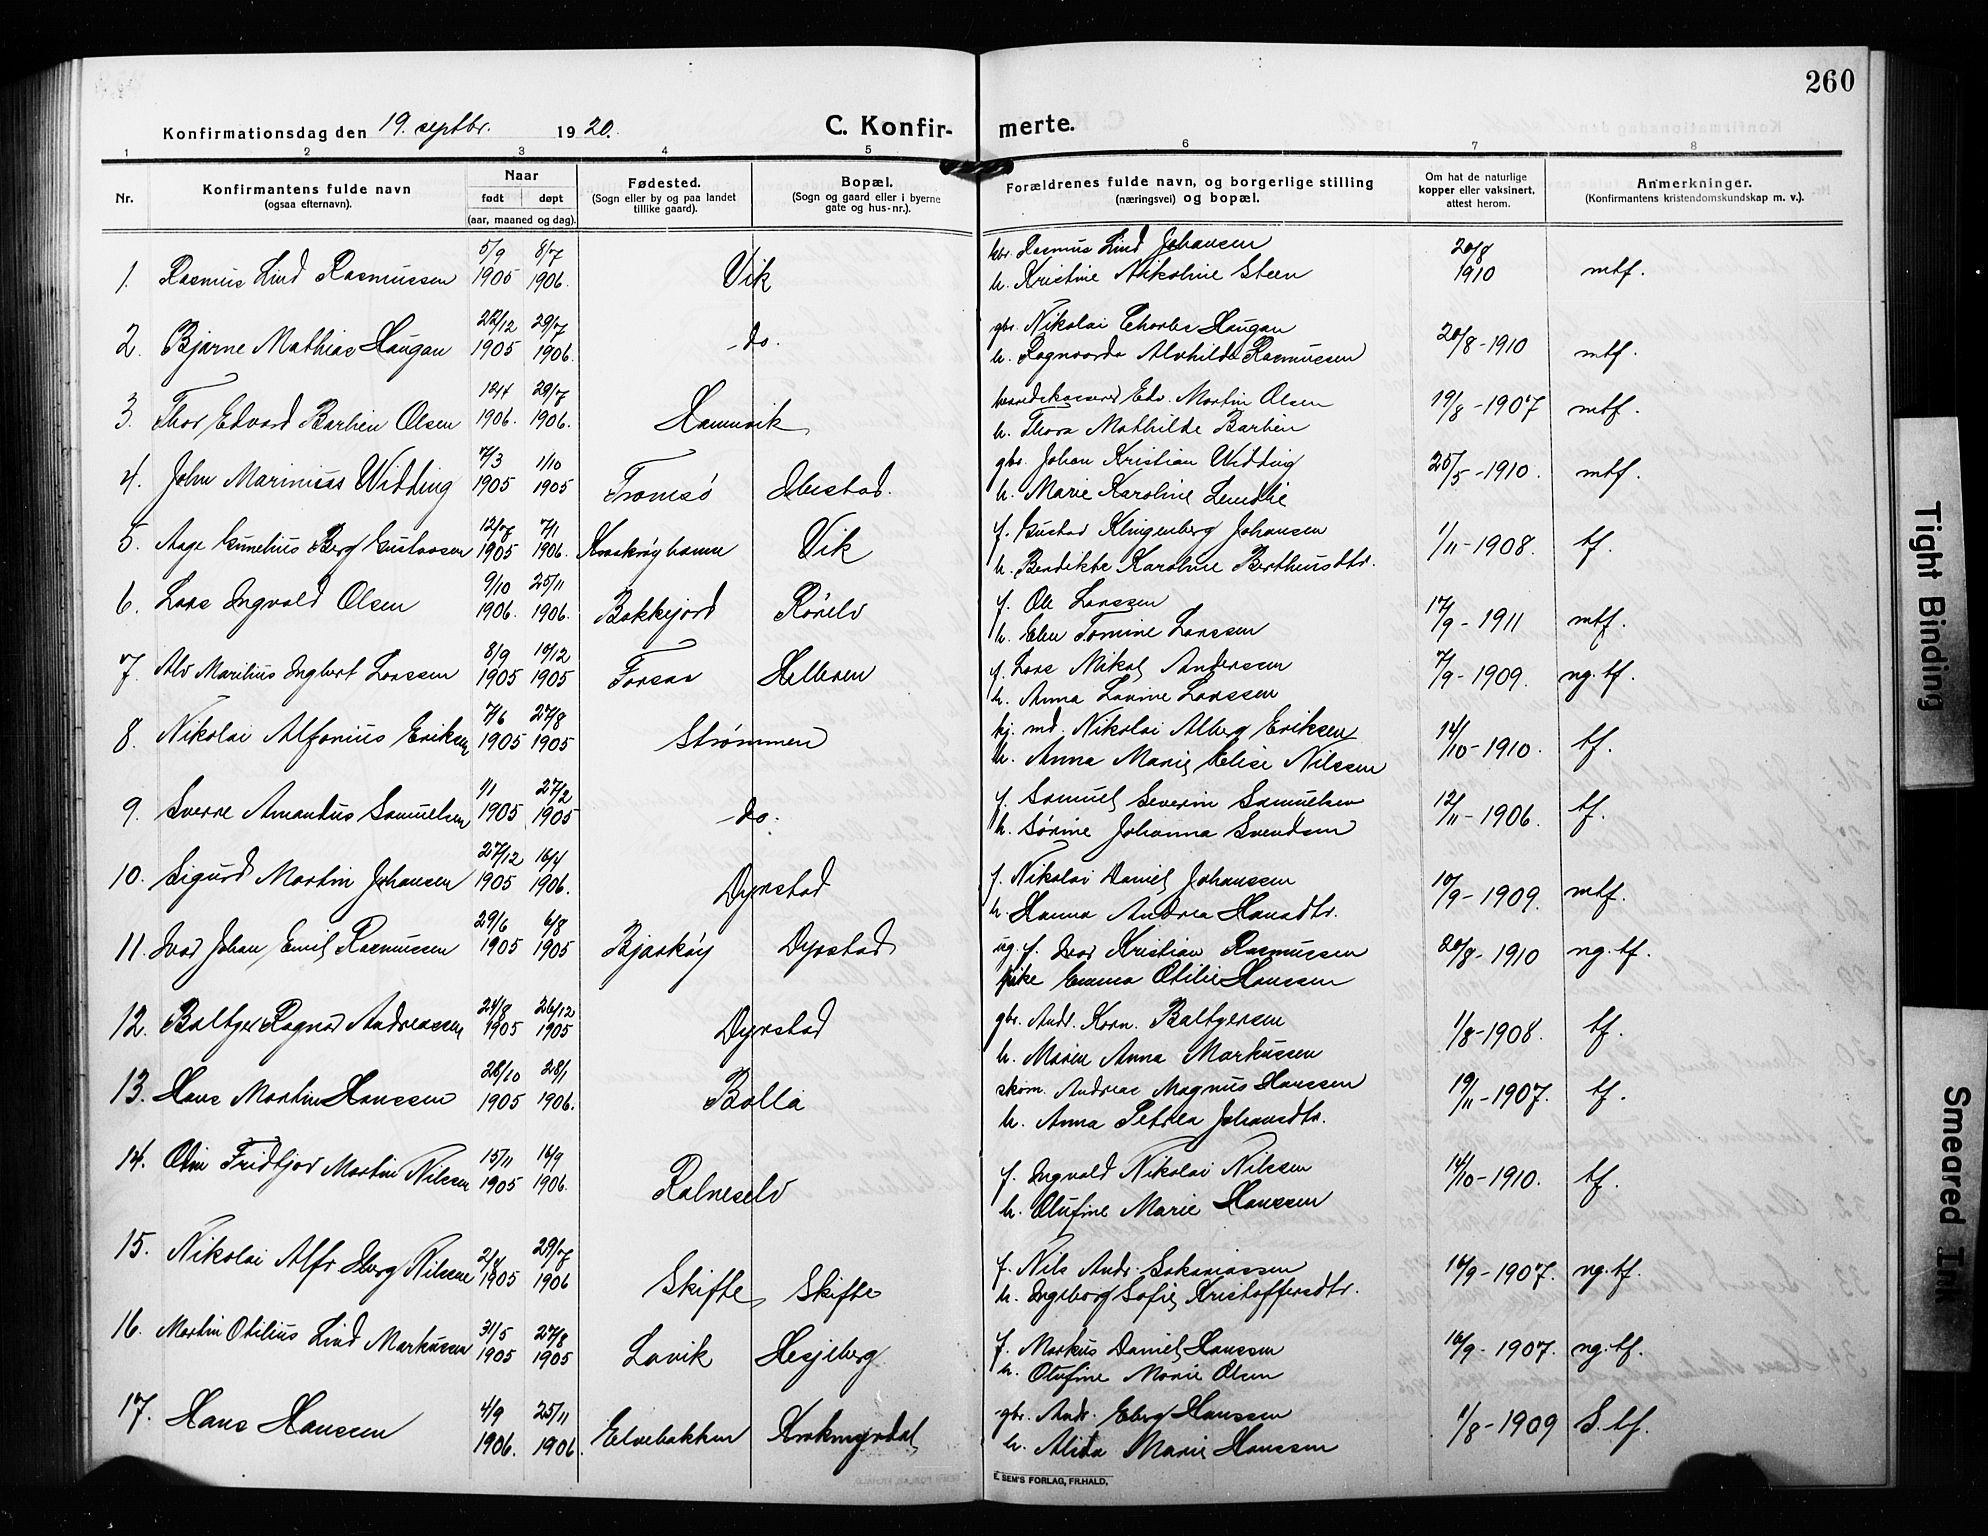 260
Konfirmationsdag den 19. septbr. 1920.
C. Konfir-merte.
1 2 3 4 5 6 7 8
Nr.
Konfirmantens fulde navn
(ogsaa efternavn).
Naar
født døpt
(aar, maaned og dag).
Fødested.
(Sogn eller by og paa landet
tillike gaard).
Bopæl.
(Sogn og gaard eller i byerne
gate og hus-nr.).
Forældrenes fulde navn, og borgerlige stilling
(næringsvei) og bopæl.
Om hat de naturlige
kopper eller vaksinert,
attest herom.
Anmerkninger.
(Konfirmantens kristendomskundskap m. v.).
5/9 8/7 Rasmus Lind Johansen 20/8
1. Rasmus Lind Rasmussen 1905 1906. Vik h. Kristine Nikoline Steen 1910 mtf.
22/12 29/7 gbr. Nikolai Charles Haugan
2. Bjarne Mathias Haugan 1905 1906. -do- h. Ragnarda Alvhilde Rasmussen 20/8-1910 mtf.
29/7 Edv. Martin Olsen
3. Thor Edvard Barhen Olsen 1906. 1906. Hamnvik h. Thora Mathilde Barhen 19/8-1907 mtf.
7/3 1/10 gbr. Johan Kristian Widding
4. John Marinius Widding 1905 1905 Tromsø Ibestad. h. Marie Karoline Lundlie 25/5-1910. mtf.
12/7 7/1 f. Gustav Klingenberg Johansen
5. Aage Gunelius Berg Gustavsen 1905 1906. Vik h. Bendikte Karoline Bertheusdtr. 1/11-1908. tf.
9/10 25/11 f. Ole Larssen
6. Lars Ingvald Olsen 1906. 1906. Bakkejord Rørelv h. Elen Tomine Larssen 17/9-1911 mtf.
8/9 10/12 f. Lars Nikol. Anderssen
7. Alv Marilius Ingbert Larssen 1905 1905 Forsaa Helleren h. Anna Lavine Larssen 7/9-1909. ng. tf.
7/6 27/8 kj. md. Nikolai Alberg Eriksen
8. Nikolai Alfonius Eriksen 1905 1905 Strømmen h. Anna Marie Elise Nilssen 14/10-1910. tf.
1/1 27/2 f. Samuel Severin Samuelsen
9. Sverre Amandus Samuelsen 1905 1905 -do- h. Sørine Johanna Svendsen 12/11-1906. tf.
27/12 16/4 f. Nikolai Daniel Johanssen
10. Sigurd Martin Johansen 1905 1906. Dyrstad h. Hanna Andrea Hansdtr. 10/9-1909. mtf.
29/6 6/8 ug. f. Ivar Kristian Rasmussen
11. Ivar Johan Emil Rasmussen 1905 1905 Bjarkøy Dyrstad pike Emma Otilie Hanssen 20/8-1910 ng. tf.
24/8 26/12 gbr. Andr. Korn. Baltzersen
12. Baltzer Ragnar Andreassen 1905 1905 Dyrstad h. Maren Anna Markussen 1/8-1908. tf.
28/10 28/1 skom. Andreas Magnus Hanssen
13. Hans Martin Hanssen 1905 1906. Bolla h. Anna Petrea Johansdtr. 19/11-1907. tf.
15/11 16/9 f. Ingvald Nikolai Nilssen
14. Odin Fridtjov Martin Nilssen 1905 1906. Rolneselv h. Olufine Marie Hanssen 14/10-1910. tf.
2/4 29/7 f. Nils Andr. Sakariassen
15. Nikolai Alfr Nilssen 1905 1906 Skifte Skifte h. Ingeborg Sofie Kristoffersdtr. 16/9-1907. ng. tf.
31/5 27/8 f. Markus Daniel Hanssen
16. Martin Otilius Lind Markussen 1905 1905 Lavik Hesjeberg h. Olufine Marie Olsen 16/9-1907. ng. tf.
4/9 25/11 gbr. Andr. Eberg Hanssen
17. Hans Hanssen 1906. 1906. Elvebakken Krokmyrdal h. Alida Marie Hanssen 1/8-1909 S. tf.
E. SEM'S FORLAG, FR.HALD.
Tight Binding
Smeared Ink